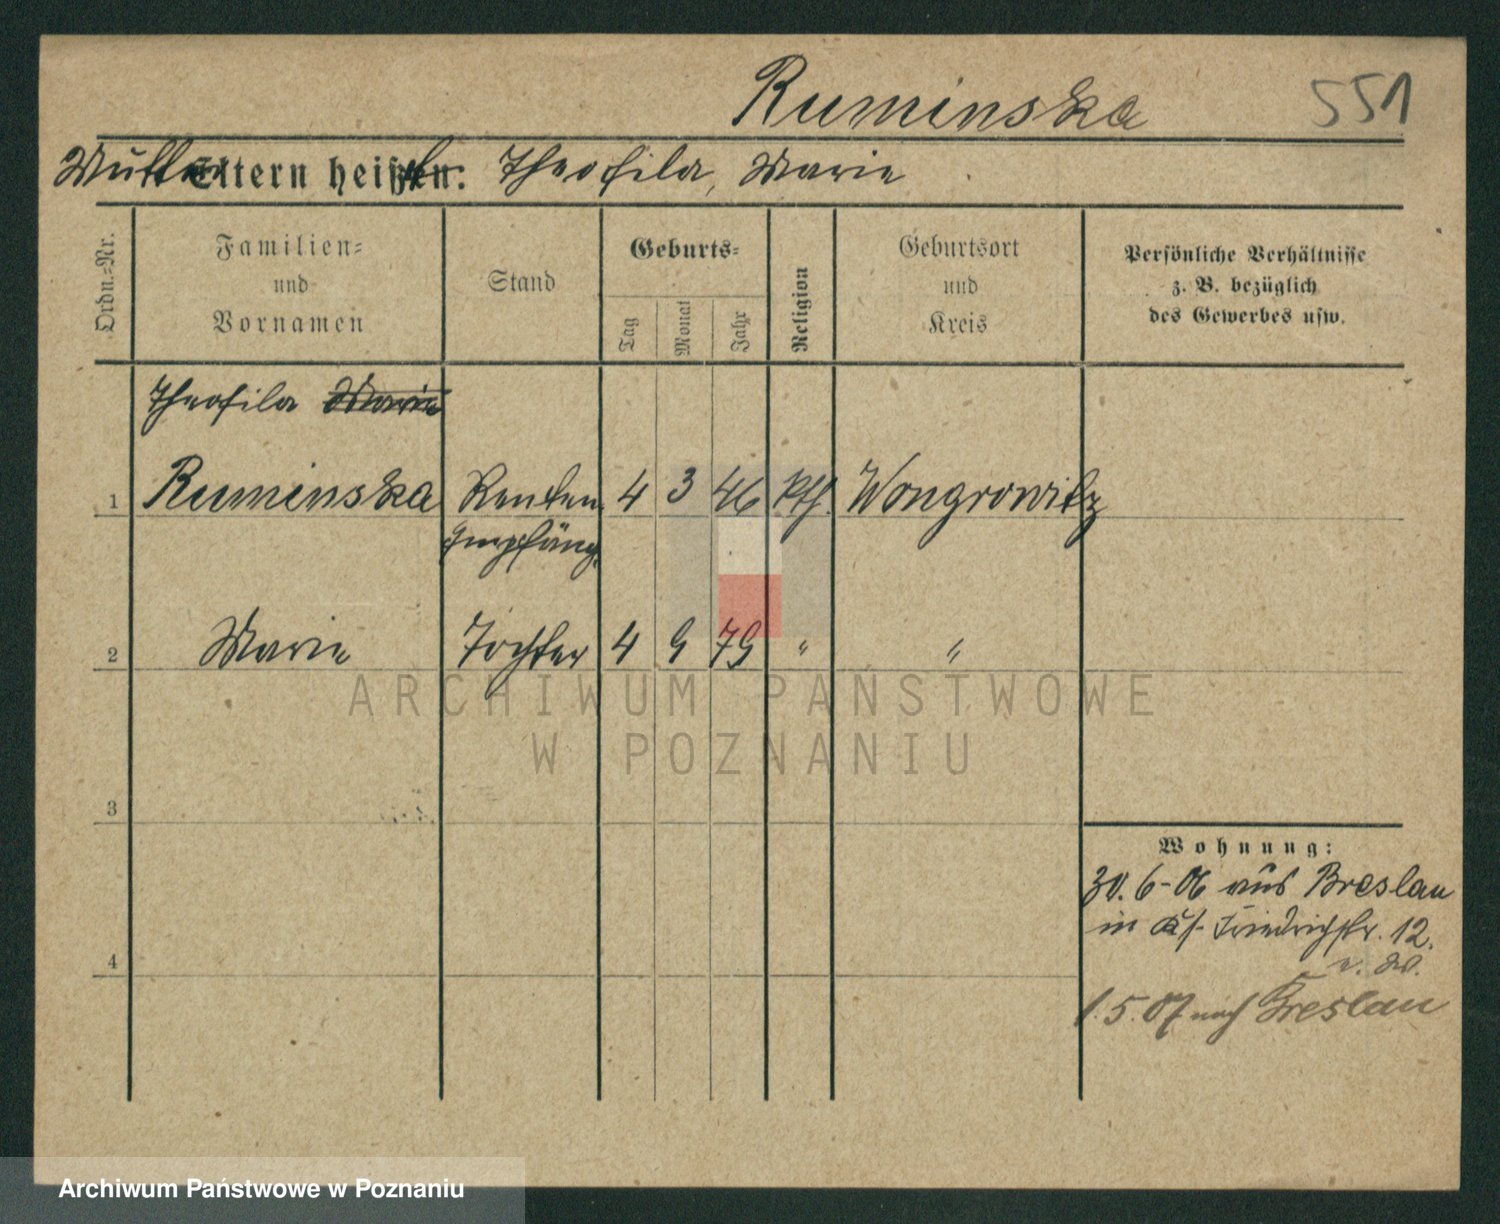 Ruminska 551
Mutter Eltern heißt: Theofila, Marie
Ordn.-Nr.
Familien-
und
Vornamen
Stand
Geburts-
Tag
Monat
Jahr
Religion
Geburtsort
und
Kreis
Persönliche Verhältnisse
z. B. bezüglich
des Gewerbes usw.
Theofila Marie
1 Ruminska Renten 4 3 46 kth. Wongrowitz
Empfäng.
2 Marie Tochter 4 9 79 " "
3
4
Wohnung:
30. 6-06 aus Breslau
in Friedrichstr. 12.
1. 5. 07 nach Breslau
ARCHIWUM PAŃSTWOWE
W POZNANIU
Archiwum Państwowe w Poznaniu